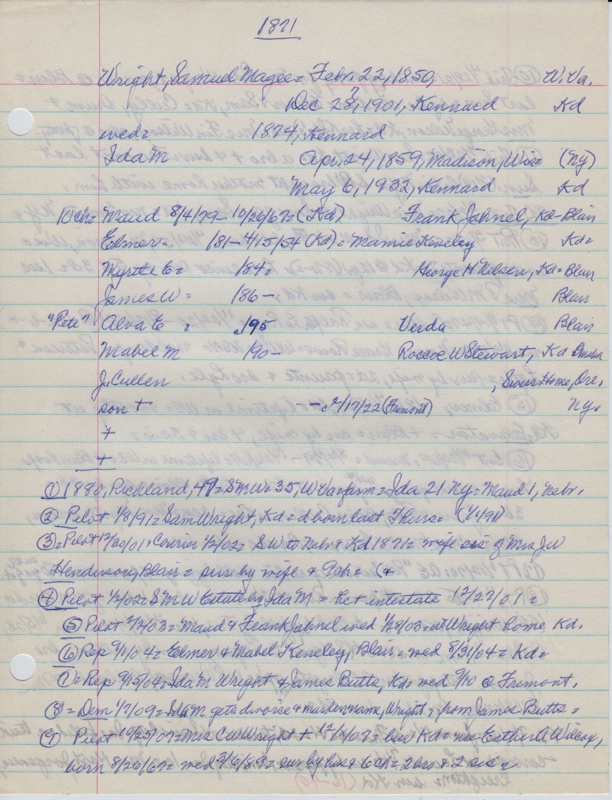 1871
Wright, Samuel Magee = Febr. 22, 1850, W. Va.
Dec 28?, 1901, Kennard Kd
wed = 1874, Kennard
Ida M Apr. 24, 1859, Madison, Wisc (Ny)
May 6, 1932, Kennard Kd
10ch = Maud 8/4/79 - 10/26/67 = (Kd) Frank Jahnel, Kd = Blair
Elmer = /81 - 4/15/54 (Kd) = Mamie Keneley Kd =
Myrtle E = /84 = George H Nielsen, Kd = Blair
James W = /86 - Blair
"Pete" Alva E = /95 Verda Blair
Mabel M /90 - Roscoe W Stewart, Kd Omaha
J. Cullen , Sweet Home, Ore.
son + 2/17/22 (Fremont) Ny.
+
+
① 1880, Richland, 49 = S M W = 35, W Va = farm = Ida 21 Ny = Maud 1, Nebr.
② Pilot 1/8/91 = Sam Wright, Kd = d born last Thurs = (1/1/91)
③ = Pilot 12/30/01 = Courier 1/2/02 = S W to Nebr & Kd 1871 = wife sis of Mrs J W
Henderson, Blair = surv by wife & 9ch = (+
④ Pilot 1/2/02 = S M W Estate by Ida M = Pet intestate 12/27/01 =
⑤ Pilot 12/03 = Maud & Frank Jahnel wed 1/28/03 = at Wright home Kd.
⑥ Rep 9/1/04 = Elmer & Mabel Keneley, Blair = wed 8/31/04 = Kd =
Rep 9/15/04 = Ida M Wright & James Butts, Kd = wed 9/10 @ Fremont.
⑧ = Dem 1/7/09 = Ida M gets divorce & maiden name, Wright, from James Butts =
Pilot = Mrs C W Wright + = Kd = nee Esther A
born 8/26/67 = wed 9/6/89 = surv by hus & 6 ch = 2 bro & 2 sis =